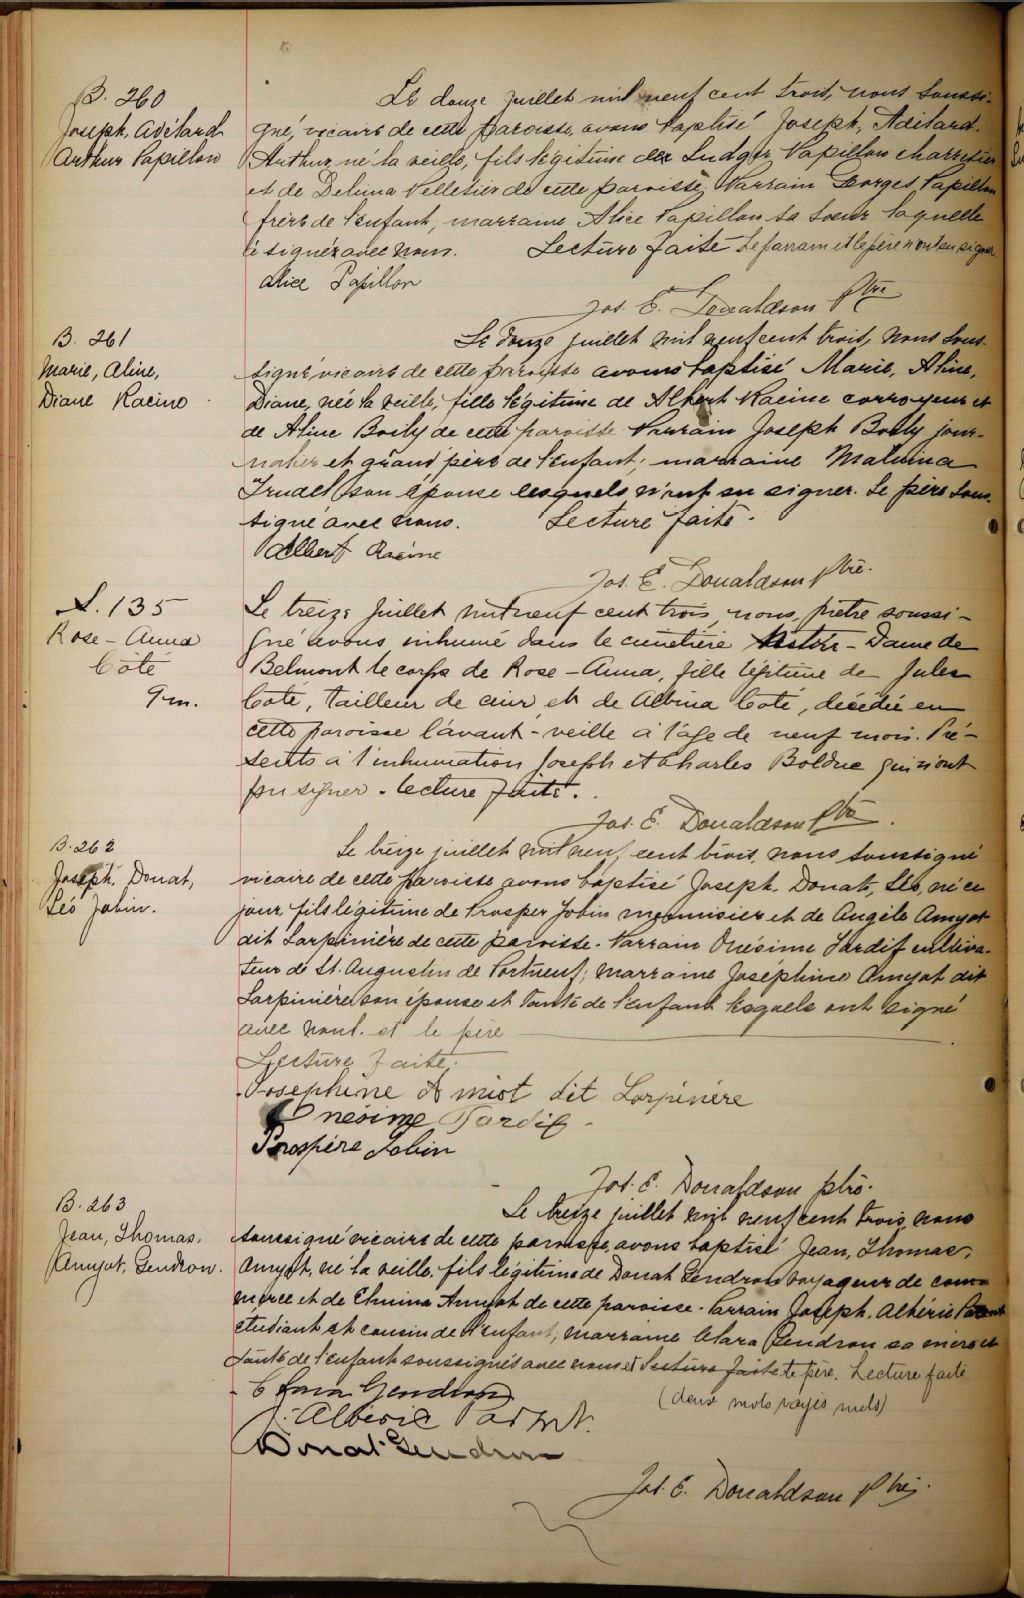 B. 260
Joseph, Adélard
Arthur Papillon
Le douze juillet mil neuf cent trois, nous soussi-
gné, vicaire de cette paroisse, avons baptisé Joseph, Adélard,
Arthur, né la veille, fils légitime de Ludger Papillon charretier
et de Delima Pelletier de cette paroisse. Parrain Georges Papillon
frère de l'enfant, marraine Alice Papillon sa soeur laquelle
a signé avec nous. Lecture faite Le parrain et le père n'ont su signer
Alice Papillon
Jos. E. Donaldson Ptre
B. 261
Marie, Aline,
Diane Racine
Le douze juillet mil neuf cent trois, nous sous-
signé vicaire de cette paroisse avons baptisé Marie, Aline,
Diane, née la veille, fille légitime de Albert Racine corroyeur et
de Aline Boily de cette paroisse Parrain Joseph Boily jour-
nalier et grand père de l'enfant; marraine Malvina
Trudel son épouse lesquels n'ont su signer. Le père sous-
signé avec nous. Lecture faite.
Albert Racine
Jos. E. Donaldson Ptre.
S. 135
Rose-Anna
Côté
9 m.
Le treize juillet mil neuf cent trois, nous, prêtre soussi-
gné avons inhumé dans le cimetière Notre-Dame de
Belmont le corps de Rose-Anna, fille légitime de Jules
Coté, tailleur de cuir et de Albina Coté, décédée en
cette paroisse l'avant-veille à l'âge de neuf mois. Pré-
sents à l'inhumation Joseph et Charles Bolduc qui n'ont
pu signer. lecture faite.
Jos. E. Donaldson Ptre.
B. 262
Joseph, Donat,
Léo Jobin.
Le treize juillet mil neuf cent trois, nous soussigné
vicaire de cette paroisse avons baptisé Joseph, Donat, Léo, né ce
jour, fils légitime de Prosper Jobin menuisier et de Angèle Amyot
dit Larpinière de cette paroisse. Parrain Onésime Tardif cultiva-
teur de St. Augustin de Portneuf; marraine Joséphine Amyot dit
Larpinière son épouse et tante de l'enfant lesquels ont signé
avec nous. et le père
Lecture faite.
Josephine Amiot dit Lorpinère
Onésime Tardif
Prospère Jobin
Jos. E. Donaldson ptre.
B. 263
Jean, Thomas,
Amyot, Gendron.
Le treize juillet mil neuf cent trois, nous
soussigné vicaire de cette paroisse, avons baptisé Jean, Thomas,
Amyot, né la veille, fils légitime de Donat Gendron voyageur de com
merce et de Elmina Amyot de cette paroisse. Parrain Joseph. Albéric Parent
étudiant et cousin de l'enfant, marraine Clara Gendron sa mère et
tante de l'enfant soussignés avec nous et lecture faite le père. Lecture faite
Clara Gendron (deux mots rayés nuls)
J. Albéric Parent.
Donat Gendron
Jos. E. Donaldson Ptre.